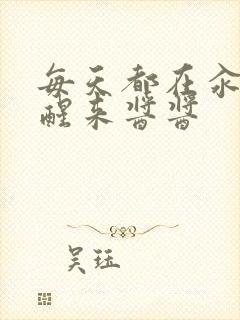 每天都在
醒来酱酱
吴珏